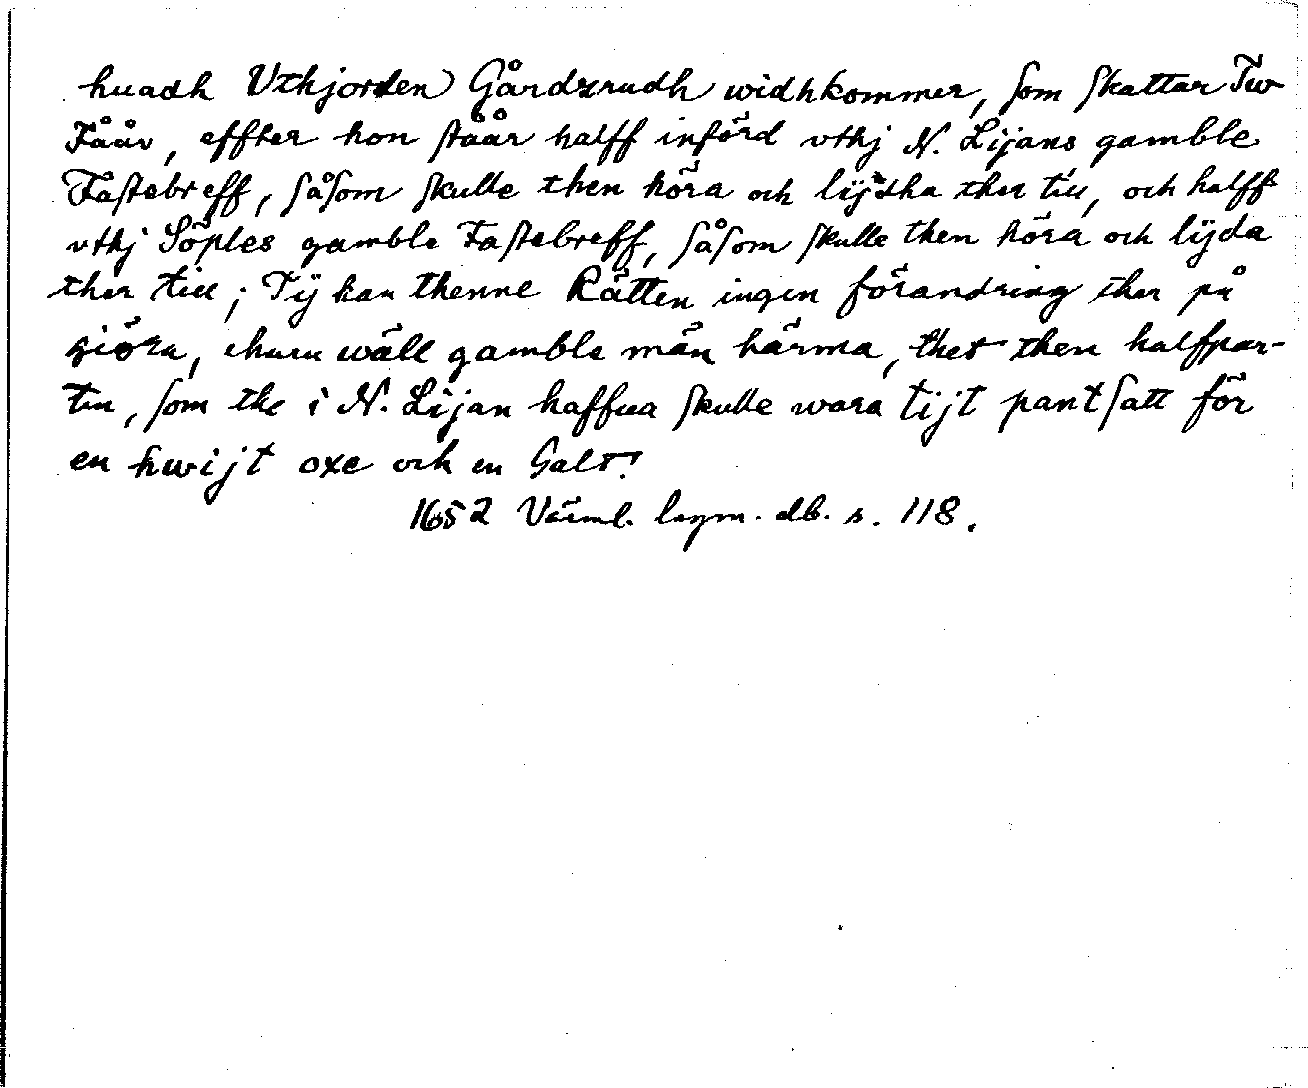 huadh Vthjorden Gårdzrudh widhkommer, som skattar Tw
Fåår, effter hon ståår halff införd vthj N. Lijans gamble
Fastebreff, såsom skulle then höra och lijdha ther till, och halff
vthj Söples gamble Fastebreff, såsom skulle then höra och lijda
ther till; Tÿ kan thenne Rätten ingen förandring ther på
giöra, ehuru wäll gamble män härma, thet then halfpar-
ten, som the i N. Lijan haffua skulle wara tijt pantsatt för
en hwijt oxe och en Galt!
1652 Värml. lagm. db. s. 118.